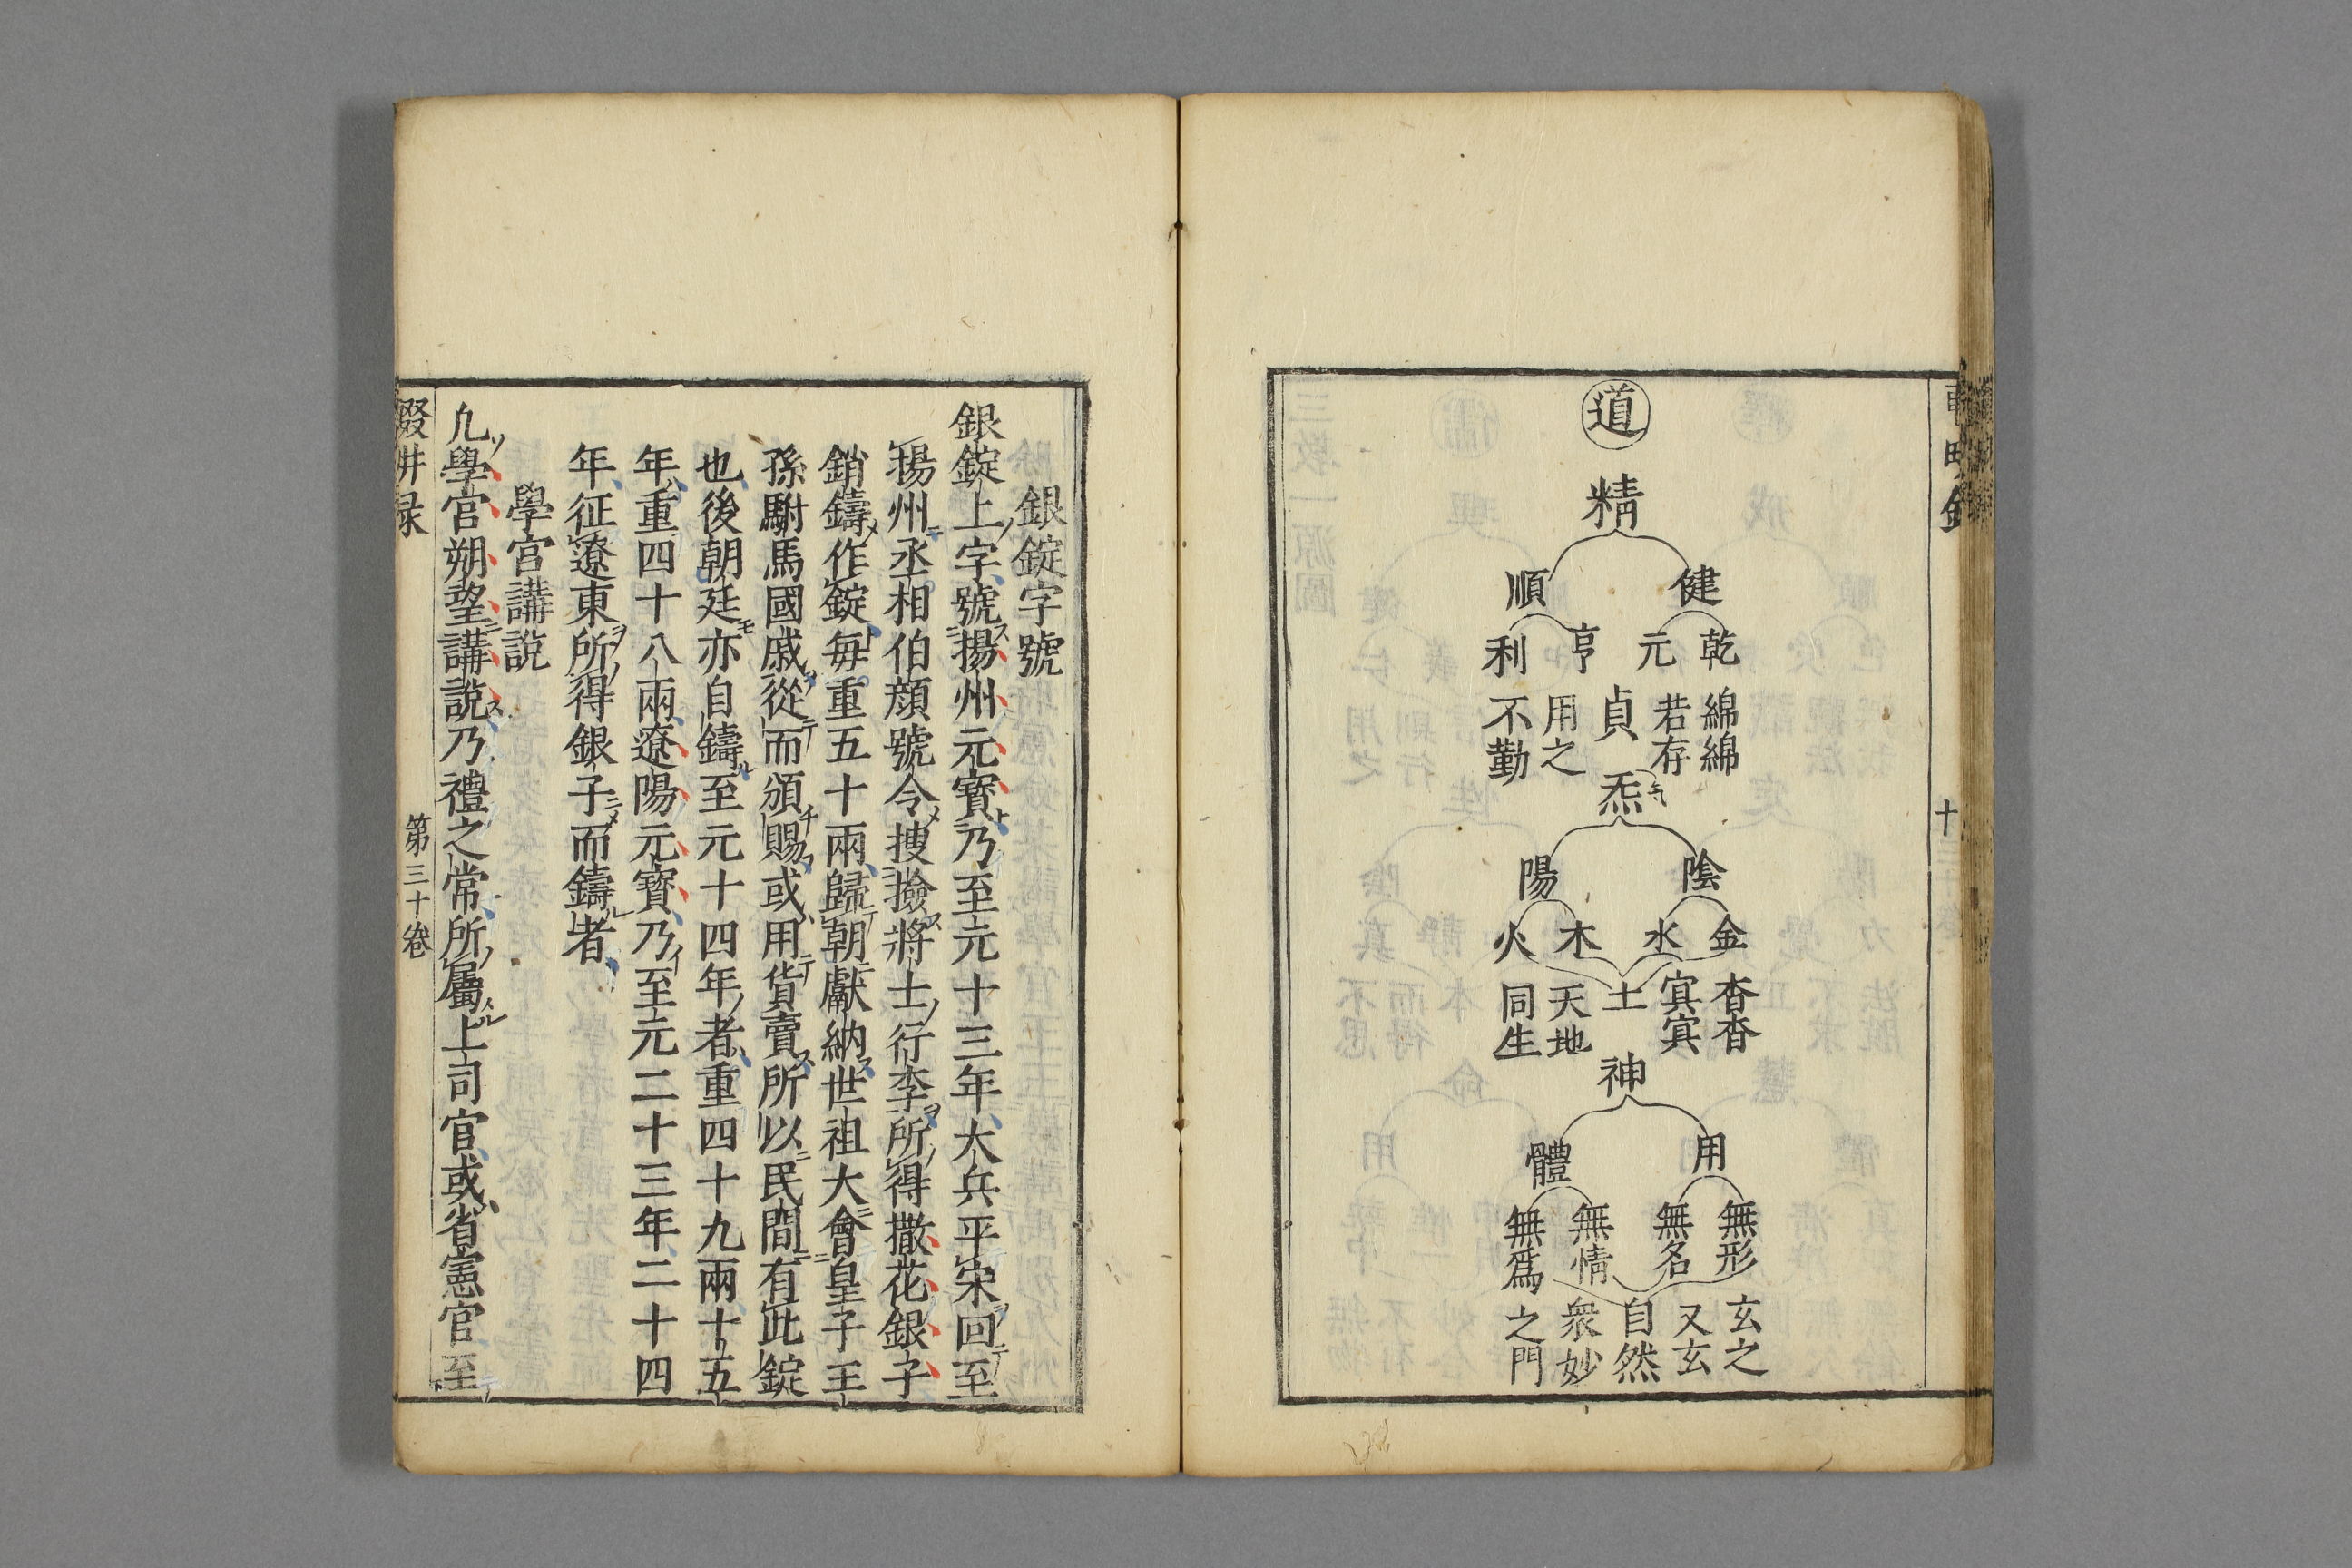 道
精
健
順
乾
元
亨
利
綿綿
若存
貞
用之
不勤
炁
陰
陽
金
水
木
火
杳杳
㝠㝠
土
天地
同生
神
用
體
無形
無名
無情
無爲
玄之
又玄
自然
衆妙
之門
銀錠字號
銀錠上字號揚州元寳乃至元十三年大兵平宋回至
揚州丞相伯顔號令搜撿將士行李所得撒花銀子
銷鑄作錠毎重五十兩歸朝獻納世祖大會皇子王
孫駙馬國戚從而頒賜或用貨賣所以民間有此錠
也後朝廷亦自鑄至元十四年者重四十九兩十五
年重四十八兩遼陽元寳乃至元二十三年二十四
年征遼東所得銀子而鑄者
學宮講說
凡學官朔望講說乃禮之常所屬上司官或省憲官至
輟畊录
第三十卷